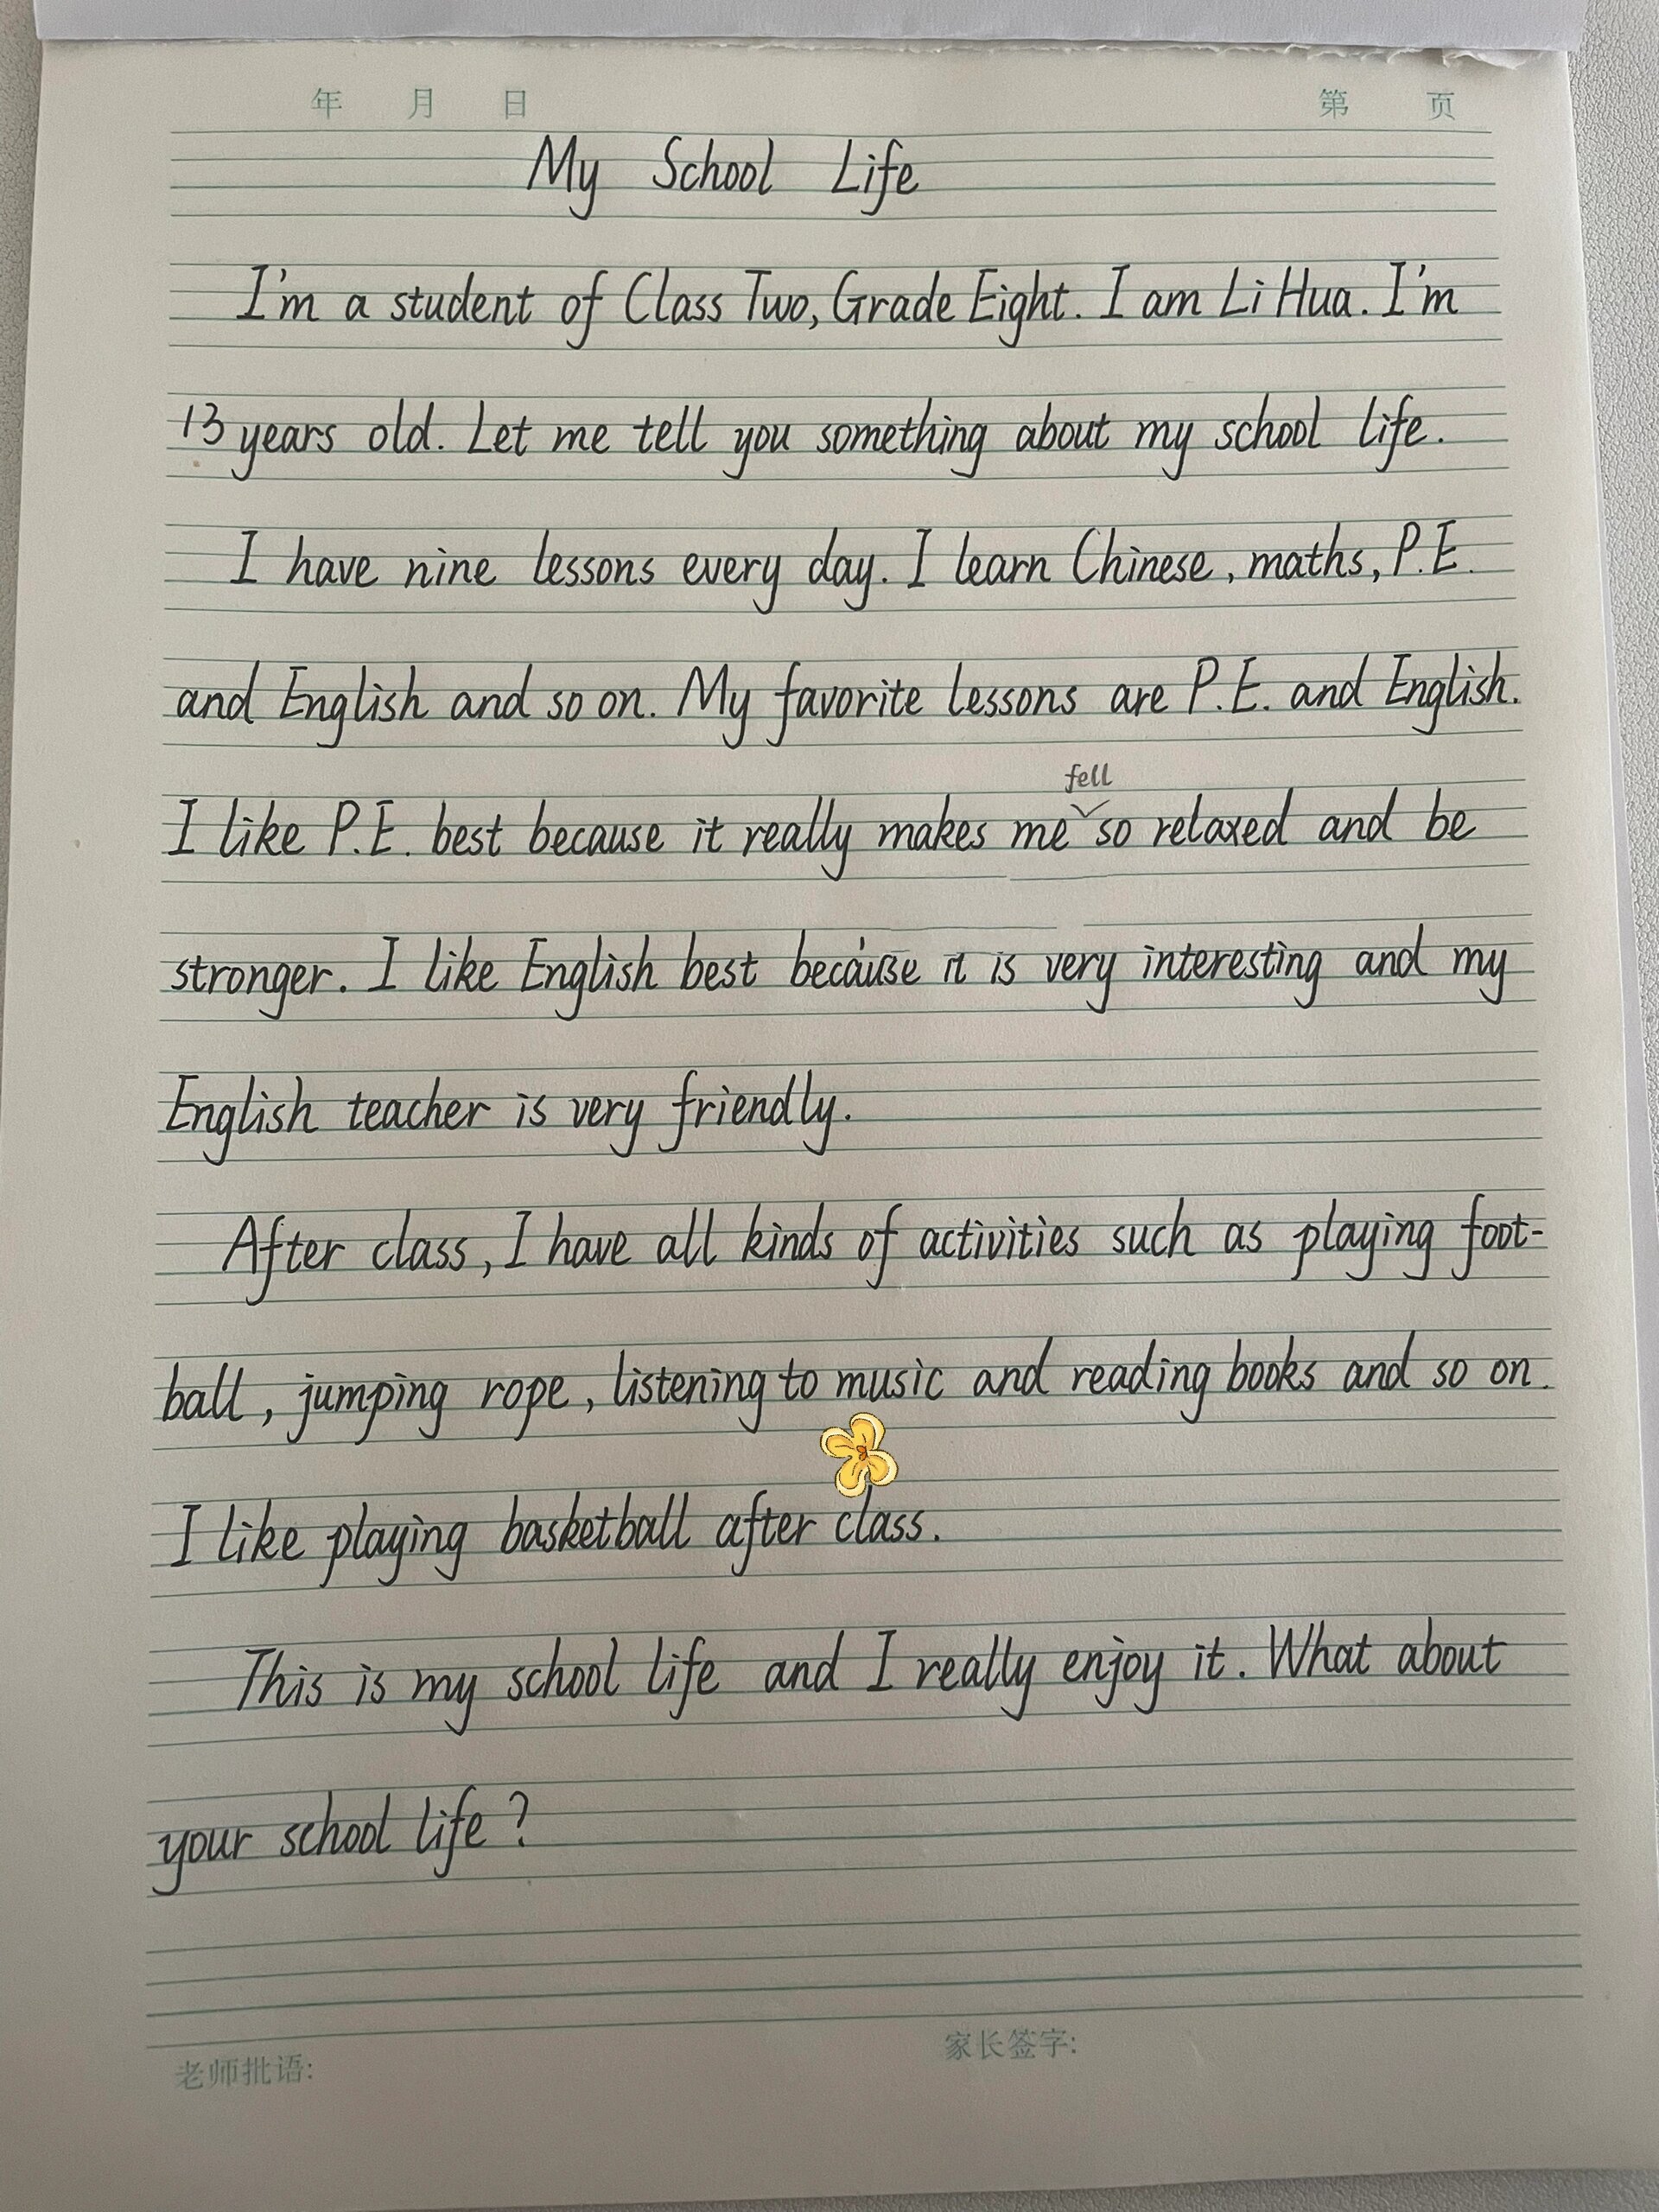 年 月 日 第 页
My School Life
I'm a student of Class Two, Grade Eight. I am Li Hua. I'm
13 years old. Let me tell you something about my school life.
I have nine lessons every day. I learn Chinese, maths, P.E.
and English and so on. My favorite lessons are P.E. and English.
fell
I like P.E. best because it really makes me so relaxed and be
stronger. I like English best because it is very interesting and my
English teacher is very friendly.
After class, I have all kinds of activities such as playing foot-
ball, jumping rope, listening to music and reading books and so on.
I like playing basketball after class.
This is my school life and I really enjoy it. What about
your school life?
老师批语: 家长签字: